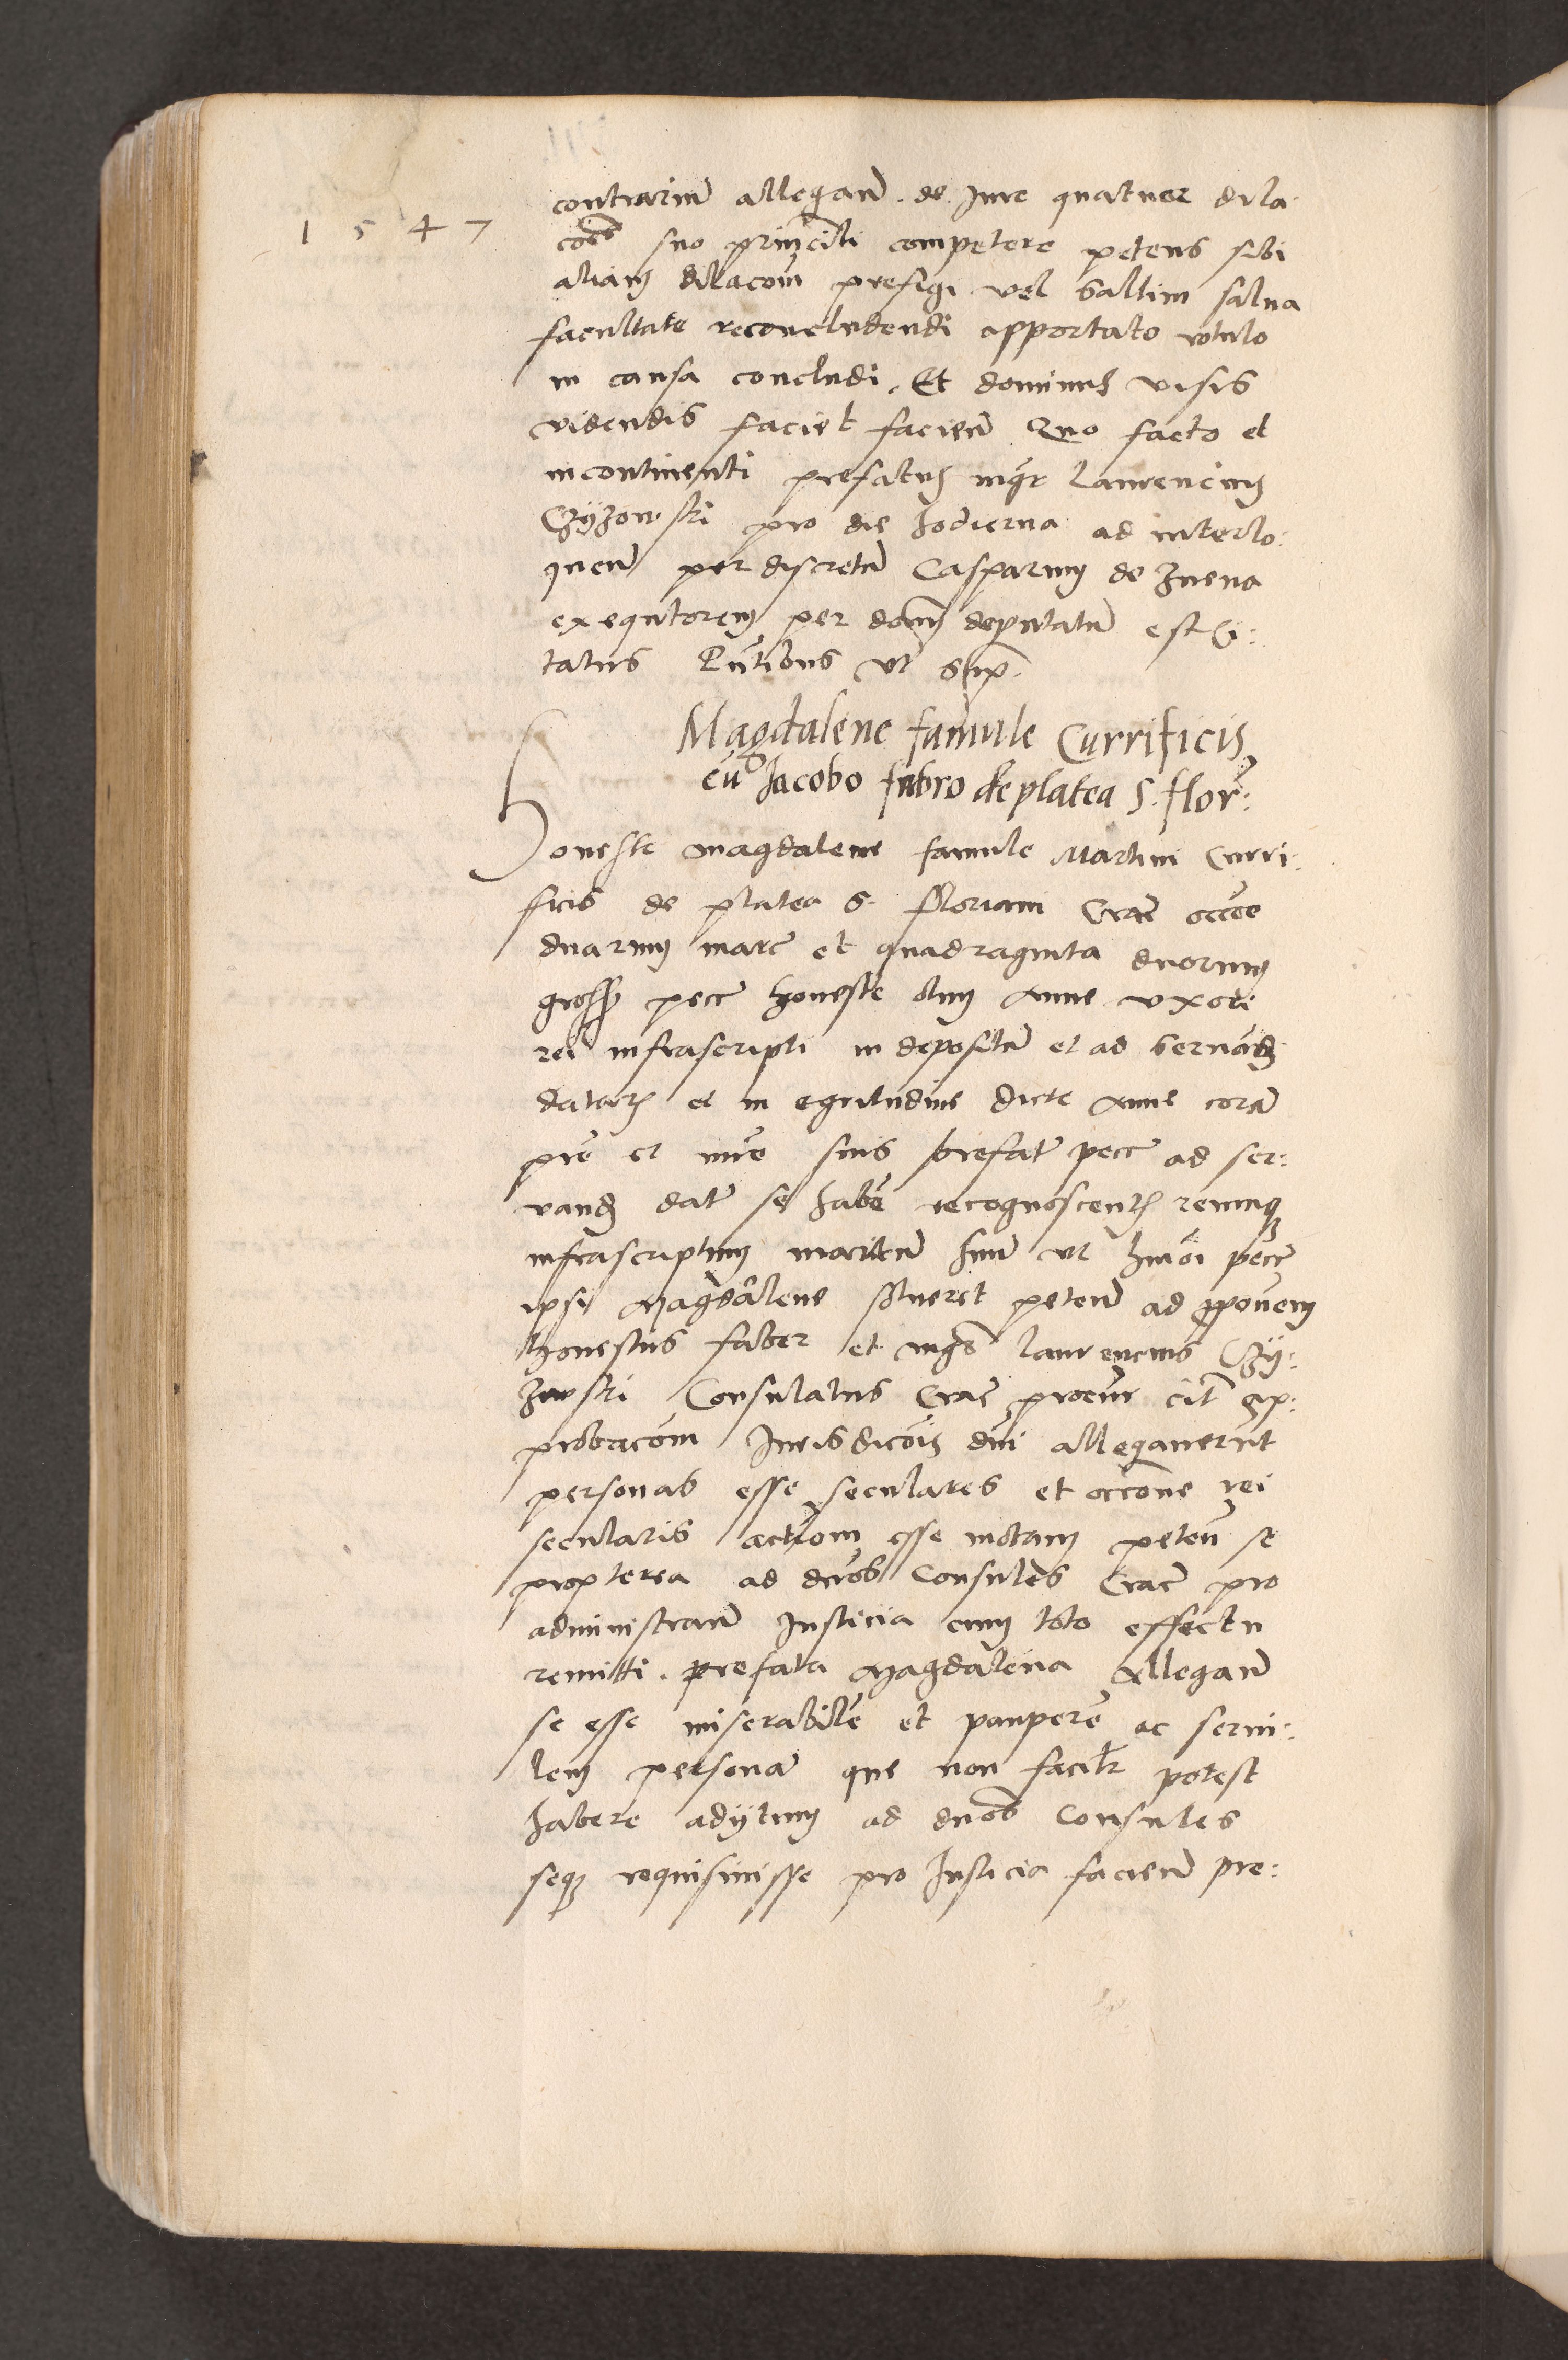 1547
contrarium allegan̄. de Jure quatuor dila
coēs suo principāli competere petens sibi
aliam dilacoem prefigi vel saltim salua
facultate reconcludendi apportato rotulo
in causa concludi. Et dominus visis
videndis faciet facien̄ Quo facto et
incontinenti prefatus mgr Laurencius
Czyzowski pro die hodierna ad interlo:
quen̄ per discretū Casparum de Znena
exequtorem per domī deputatū est Ci:
tatus Pn̄tibus vt sup.
Magdalene famule Currificis
cū Jacobo fabro de platea S. Flor:
Honeste Magdalene famule Martini Curri:
ficis de platea S. Floriani Crac̄ occōe
duarum marc̄ et quadraginta duorum
gross pecc̄ honeste olim Anne vxori
rei infrascripti in depositū et ad seruand
datar et in egritudine dicte Anne corā
pre et mre suis prefat̄ pecc̄ ad ser:
vand dat̄ se habē recognoscent reumq
infrascriptum maritū suū vt hmōi pecc̄
ipsi Magdalene solueret peten̄ ad p̄pōnem
honestus faber et mgr̄ Laurencius Czy:
zowski Consulatus Crac̄ procur cit̄ ap:
probacōem Jurisdicōis dni allegauerūt
personas esse seculares et occōne rei
secularis actiom esse motam peteñ se
propterea ad dnos Consules Crac̄ pro
administran̄ Justicia cum toto effectu
remitti. prefata Magdalena Allegan̄
se esse miserabilē et pauperē ac serui:
lem personā que non facilr potest
habere adytum ad dnos Consules
seq requisiuisse pro Justicia facien̄ pre: